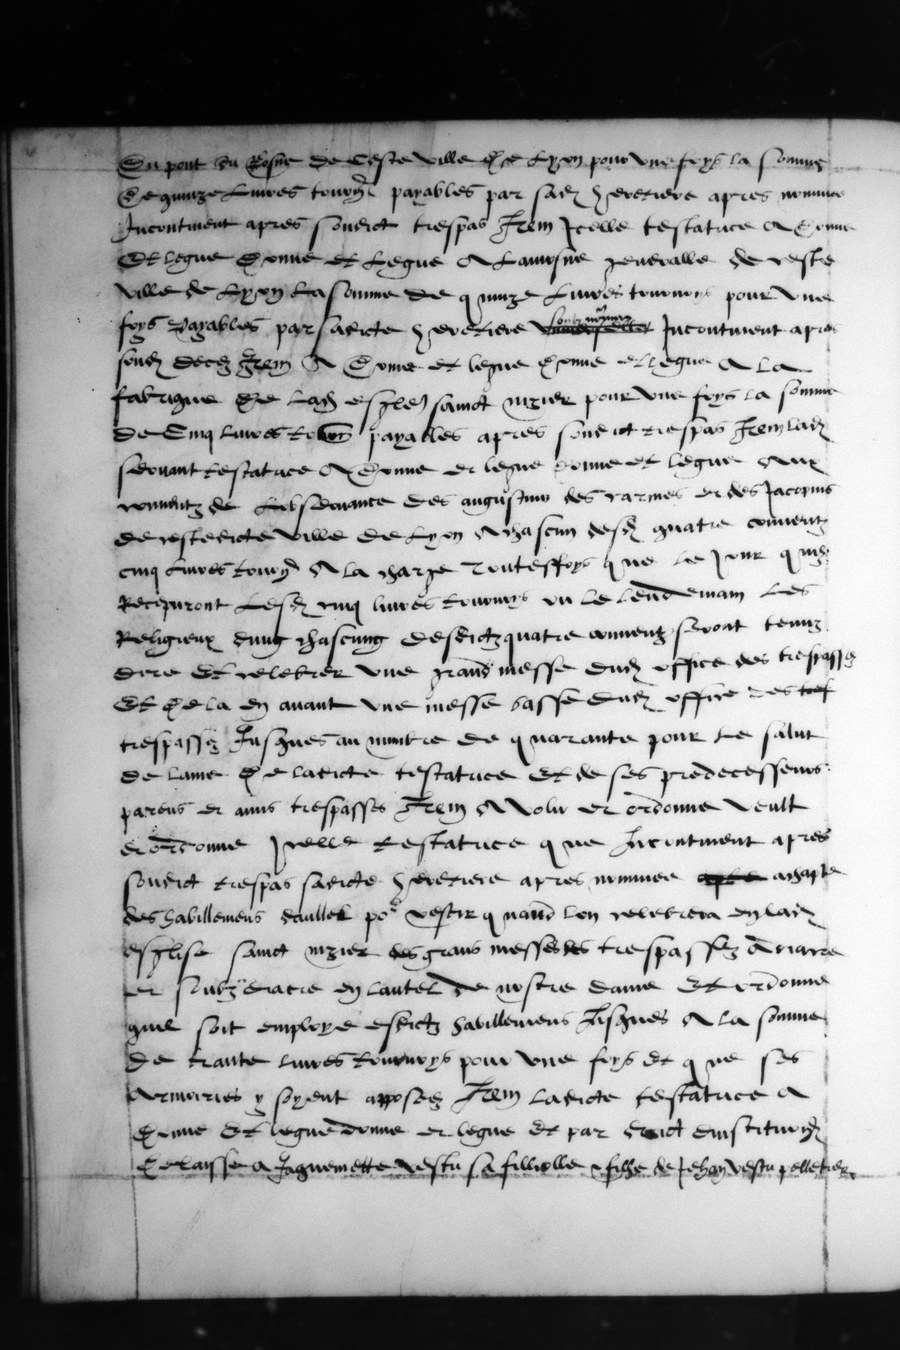 Du pont du Rosne de ceste ville de Lyon pour une foys la somme
de quinze livres tourn payables par sad heretiere apres nommee
Incontinent apres sondict trespas Item Icelle testatrice a donne
et legue donne et legue a Laumosne generalle de ceste
ville de Lyon La somme de quinze Livres tournoys pour une
foys payables par sadicte heretiere soubz nommee Incontinent apres
sond deces Item A donne et legue donne et legue A La
fabrique de Lad esglise sainct nizier pour une foys la somme
de Cinq Livres tourn payables apres sondict trespas Item lad
devant testatrice A donne et legue donne et legue aux
couventz de Lobservance des augustins des carmes et des Jacopins
de cestedicte ville de Lyon A chascun desd quatre couventz
cinq Livres tourn A la charge toutesfoys que le jour quilz
Recepvront Lesd cinq livres tournoys ou le lendemain Les
Religieux dung chascung desdictz quatre couventz seront tenuz
dire et celebrer une grand messe dud office des trespassez
et de la en avant une messe basse dud office des
trespassez Jusques au nombre de quarante pour le salut
de lame de ladicte testatrice et de ses predecesseurs
parens et amis trespasses Item A volu et ordonne veult
et ordonne Icelle testatrice que Incontinent apres
sondict trespas sadicte heretiere apres nommee achapte
des habillemens pour vestir quand lon celebrera en lad
esglise sainct nizier des grans messes des trespassez diacre
et soubzdiacre en lautel de nostre dame et ordonne
quil soit employe esdictz habillemens Jusques A la somme
de trante livres tournoys pour une foys et que ses
Armoiries y soyent apposees Item Ladicte testatrice a
donne et legue donne et legue et par droict dinstitution
delaisse a Jaquemette vestu sa filliolle fille de Jehan vestu pelletier